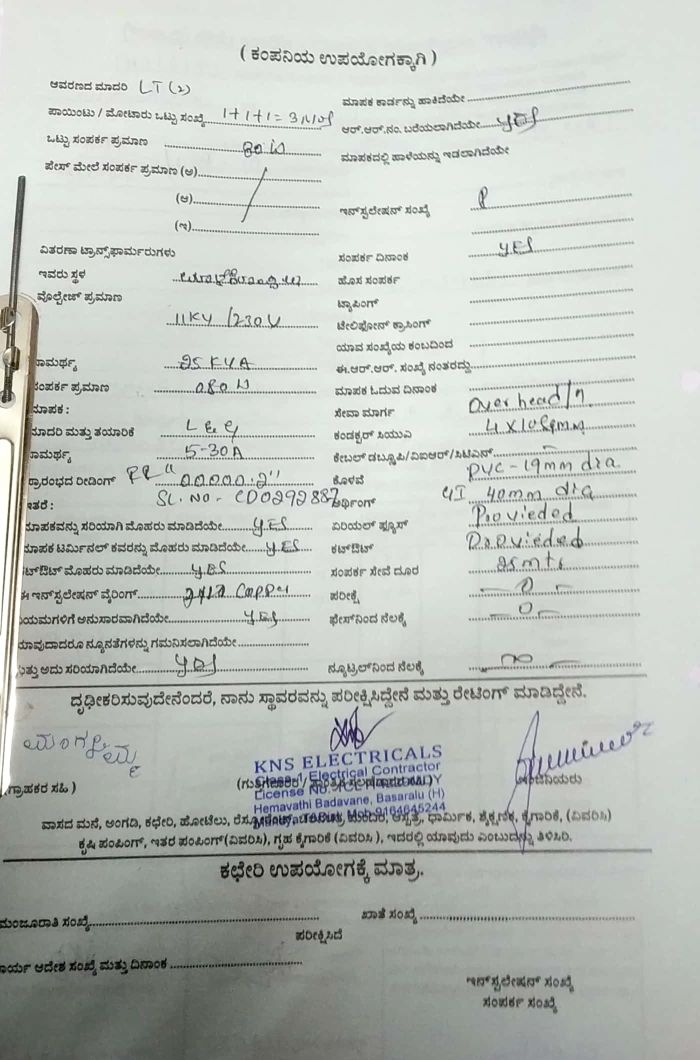 ( ಕಂಪನಿಯ ಉಪಯೋಗಕ್ಕಾಗಿ )
ಆವರಣದ ಮಾದರಿ LT (2)
ಮಾಪಕ ಕಾರ್ಡನ್ನು ಹಾಕಿದೆಯೇ
ಪಾಯಿಂಟು / ಮೋಟಾರು ಒಟ್ಟು ಸಂಖ್ಯೆ 1+1+1= 3 Nos
ಆರ್.ಆರ್.ನಂ. ಬರೆಯಲಾಗಿದೆಯೇ YES
ಒಟ್ಟು ಸಂಪರ್ಕ ಪ್ರಮಾಣ 80 W
ಮಾಪಕದಲ್ಲಿ ಹಾಳೆಯನ್ನು ಇಡಲಾಗಿದೆಯೇ
ಪೇಸ್ ಮೇಲೆ ಸಂಪರ್ಕ ಪ್ರಮಾಣ (ಅ)
(ಆ)
(ಇ)
ಇನ್‌ಸ್ಟಲೇಷನ್ ಸಂಖ್ಯೆ
ವಿತರಣಾ ಟ್ರಾನ್ಸ್‌ಫಾರ್ಮರುಗಳು
ಸಂಪರ್ಕ ದಿನಾಂಕ YES
ಇವರು ಸ್ಥಳ
ಹೊಸ ಸಂಪರ್ಕ
ವೊಲ್ಟೇಜ್ ಪ್ರಮಾಣ 11KV /230V
ಟ್ಯಾಪಿಂಗ್
ಟೆಲಿಫೋನ್ ಕ್ರಾಸಿಂಗ್
ಯಾವ ಸಂಖ್ಯೆಯ ಕಂಬದಿಂದ
ಸಾಮರ್ಥ್ಯ 25 KVA
ಈ.ಆರ್.ಆರ್. ಸಂಖ್ಯೆ ನಂತರದ್ದು
ಸಂಪರ್ಕ ಪ್ರಮಾಣ 080 W
ಮಾಪಕ ಓದುವ ದಿನಾಂಕ
ಮಾಪಕ :
ಸೇವಾ ಮಾರ್ಗ Over head
ಮಾದರಿ ಮತ್ತು ತಯಾರಿಕೆ
ಕಂಡಕ್ಟರ್ ಸಿಯುವಿ 4 X 10 Sqmm
ಸಾಮರ್ಥ್ಯ 5-30A
ಕೇಬಲ್ ಡಬ್ಲ್ಯೂಪಿ/ವಿಐಆರ್/ಸಿಟಿಎಸ್
ಪ್ರಾರಂಭದ ರೀಡಿಂಗ್ FR "00000.2"
ಕೊಳವೆ PVC - 19mm dia
ಇತರೆ : SL. NO - CD0292887
ಅರ್ಥಿಂಗ್ GI 40mm dia
ಮಾಪಕವನ್ನು ಸರಿಯಾಗಿ ಮೊಹರು ಮಾಡಿದೆಯೇ YES
ಏರಿಯಲ್ ಫ್ಯೂಸ್ Provieded
ಮಾಪಕ ಟರ್ಮಿನಲ್ ಕವರನ್ನು ಮೊಹರು ಮಾಡಿದೆಯೇ YES
ಕಟ್‌ಔಟ್ Provieded
ಕಟ್‌ಔಟ್ ಮೊಹರು ಮಾಡಿದೆಯೇ YES
ಸಂಪರ್ಕ ಸೇವೆ ದೂರ 25 mts
ಈ ಇನ್‌ಸ್ಟಲೇಷನ್ ವೈರಿಂಗ್ Copper
ಪರೀಕ್ಷೆ - 0 -
ನಿಯಮಗಳಿಗೆ ಅನುಸಾರವಾಗಿದೆಯೇ YES
ಫೇಸ್‌ನಿಂದ ನೆಲಕ್ಕೆ - 0 -
ಯಾವುದಾದರೂ ನ್ಯೂನತೆಗಳನ್ನು ಗಮನಿಸಲಾಗಿದೆಯೇ
ಮತ್ತು ಅದು ಸರಿಯಾಗಿದೆಯೇ YES
ನ್ಯೂಟ್ರಲ್‌ನಿಂದ ನೆಲಕ್ಕೆ ∞ -
ದೃಢೀಕರಿಸುವುದೇನೆಂದರೆ, ನಾನು ಸ್ಥಾವರವನ್ನು ಪರೀಕ್ಷಿಸಿದ್ದೇನೆ ಮತ್ತು ರೇಟಿಂಗ್ ಮಾಡಿದ್ದೇನೆ.
ಮಂಗಳಮ್ಮ
KNS ELECTRICALS
Class-1 Electrical Contractor
ಗ್ರಾಹಕರ ಸಹಿ )
Hemavathi Badavane, Basaralu (H)
Mob-9164645244
ವಾಸದ ಮನೆ, ಅಂಗಡಿ, ಕಛೇರಿ, ಹೋಟೆಲು, ಧಾರ್ಮಿಕ, ಶೈಕ್ಷಣಿಕ, ಕೈಗಾರಿಕೆ, (ವಿವರಿಸಿ)
ಕೃಷಿ ಪಂಪಿಂಗ್, ಇತರ ಪಂಪಿಂಗ್(ವಿವರಿಸಿ), ಗೃಹ ಕೈಗಾರಿಕೆ (ವಿವರಿಸಿ ), ಇದರಲ್ಲಿ ಯಾವುದು ಎಂಬುದನ್ನು ತಿಳಿಸಿರಿ.
ಕಛೇರಿ ಉಪಯೋಗಕ್ಕೆ ಮಾತ್ರ.
ಮಂಜೂರಾತಿ ಸಂಖ್ಯೆ
ಖಾತೆ ಸಂಖ್ಯೆ
ಪರೀಕ್ಷಿಸಿದೆ
ಕಾರ್ಯ ಆದೇಶ ಸಂಖ್ಯೆ ಮತ್ತು ದಿನಾಂಕ
ಇನ್‌ಸ್ಟಲೇಷನ್ ಸಂಖ್ಯೆ
ಸಂಪರ್ಕ ಸಂಖ್ಯೆ